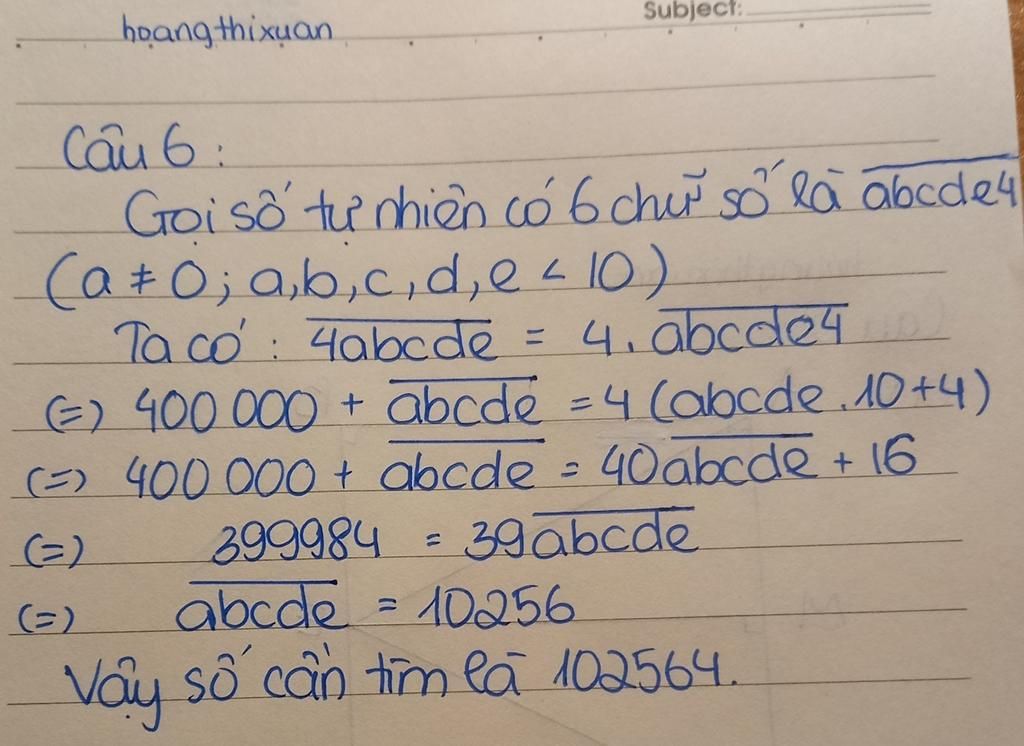 Subject:
hoangthixuan
Câu 6:
Gọi số tự nhiên có 6 chữ số là abcde4
(a ≠ 0; a,b,c,d,e < 10)
Ta có: 4abcde = 4. abcde4
(=) 400 000 + abcde = 4 (abcde.10+4)
(=) 400 000 + abcde = 40abcde + 16
(=) 399984 = 39abcde
(=) abcde = 10256
Vậy số cần tìm là 102564.